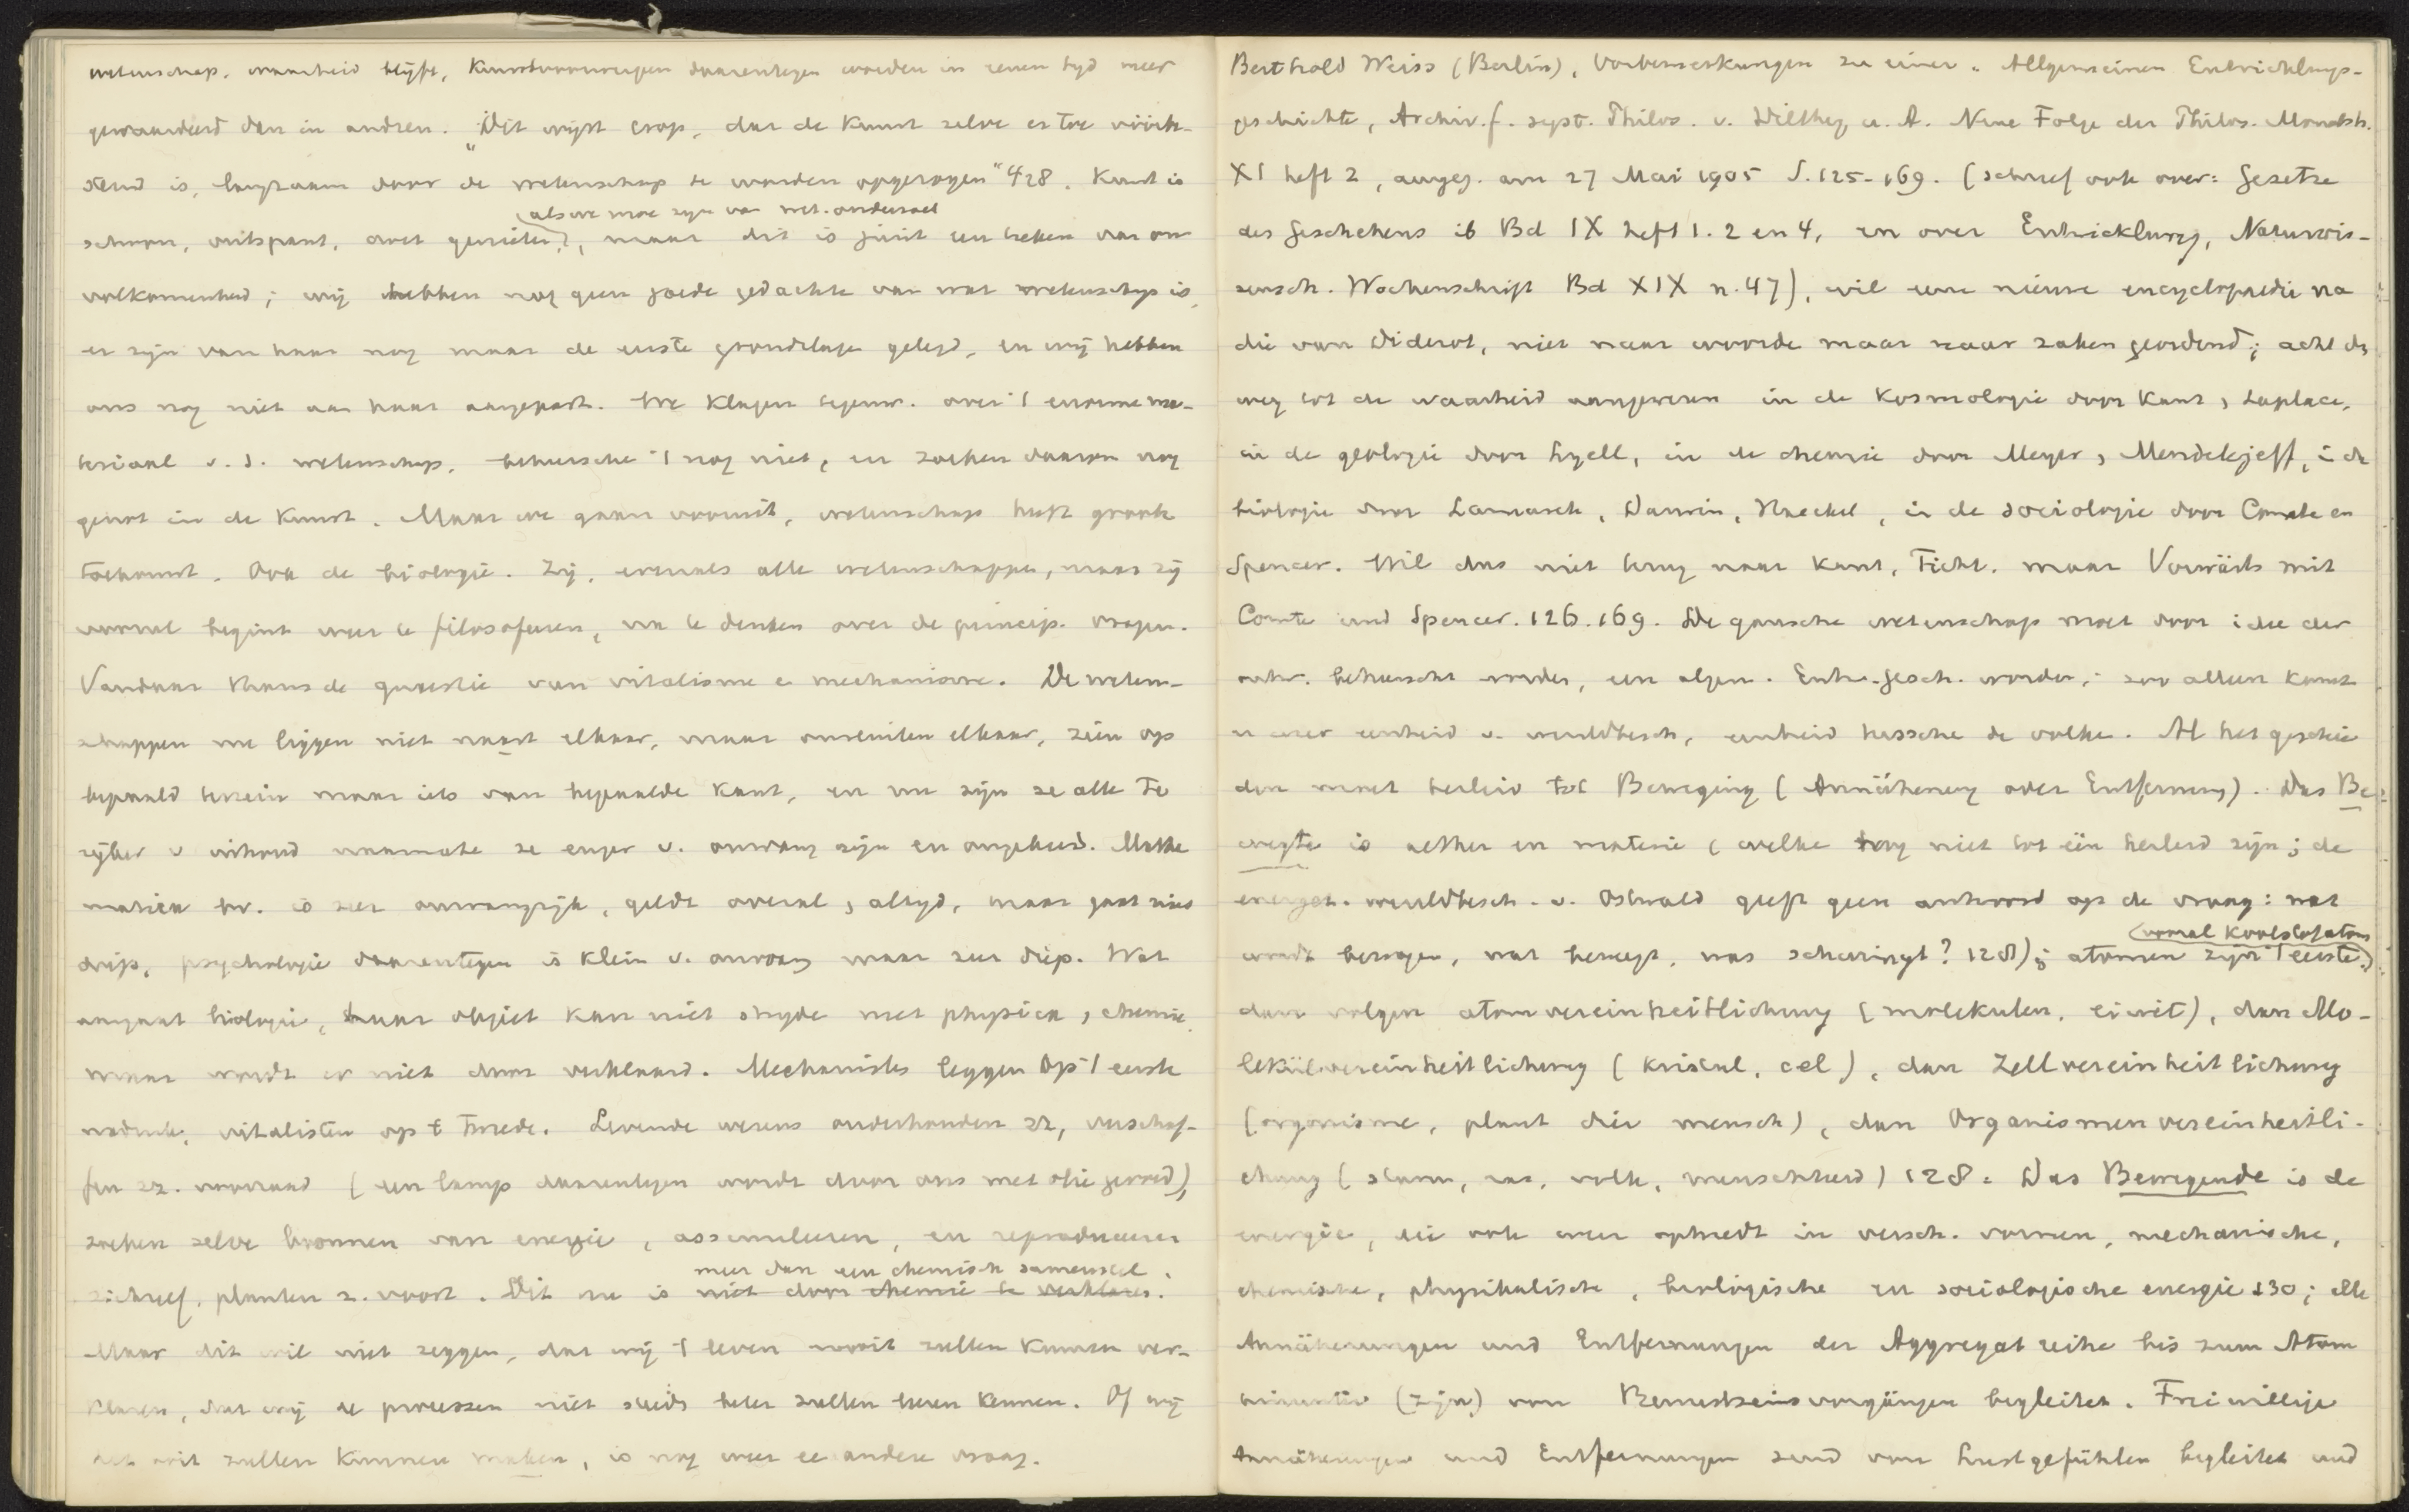 wetenschap. waarheid blijft, Kunstvormingen daarentegen worden in eenen tyd meer
gewaardeerd dan in andren. "Dit wijst erop, dat de Kunst zelve er toe
is, langzaam door de wetenschap te worden opgezogen" 428. Kunst is
schoon, ontspant, doet genieten,
(als we moe zyn van wet. onderzoek
maar dit is juist een teeken van on-
volkomenheid; wij hebben nog geen goede gedachte van wat wetenschap is,
er zyn van haar nog maar de eerste grondslagen gelegd, en wij hebben
ons nog niet aan haar aangepast. We klagen tegenw. over 't enorme ma-
teriaal v. d. wetenschap, beheersche 't nog niet, en zoeken daarom nog
genot in de Kunst. Maar we gaan vooruit, wetenschap heeft groote
toekomst. Ook de biologie. Zij, evenals alle wetenschappen, maar zij
vooral begint weer te filosofeeren, na te denken over de princip. vragen.
Vandaar thans de quaestie van vitalisme e mechanisme. De weten-
schappen nu liggen niet naast elkaar, maar omsluiten elkaar, zien op
bepaald terrein maar iets van bepaalde Kant, en nu zijn ze alle te
rijker v inhoud naarmate ze enger v. omvang zijn en omgekeerd. Mathe
matica bv. is zeer omvangrijk, geldt overal, altyd, maar gaat niet
diep, psychologie daarentegen is klein v. omvang maar zeer diep. Wat
aangaat biologie, haar object kan niet stryde met physica, chemie,
maar wordt er niet door verklaard. Mechanisten leggen op 't eerste
nadruk, vitalisten op 't tweede. Levende wezens onderhouden zz, verschaf-
fen zz. voorraad (een lamp daarentegen wordt door ons met olie gevoed),
zoeken zelve bronnen van energie, assimileeren, en reproduceeren
zichzelf, planten z. voort. Dit nu is niet door chemie te verklaren.
meer dan een chemisch samenstel.
Maar dit wil niet zeggen, dat wij 't leven nooit zullen kunnen ver-
klaren, dat wij de processen niet steeds beter zullen leeren kennen. Of wij
het ooit zullen kunnen maken, is nog weer ee andere vraag.
Berthold Weiss (Berlin), Vorbemerkungen zu einer Allgemeinen Entwicklungs-
geschichte, Archiv. f. syst. Philos. v. Dilthey u. A. Neue Folge der Philos. Monatsh.
XI heft 2, ausgeg. am 27 Mai 1905 S. 125-169. (schreef ook over: Gesetze
des Geschehens ib Bd IX heft 1. 2 en 4, en over Entwicklung, Naturwis-
sensch. Wochenschrift Bd XIX n. 47), wil eene nieuwe encyclopaedie na
die van Diderot, niet naar woorde maar naar zaken geordend; acht de
weg tot de waarheid aangewezen in de Kosmologie door Kant, Laplace,
in de geologie door Lyell, in de chemie door Meyer, Mendelejeff, in de
biologie door Lamarck, Darwin, Haeckel, in de sociologie door Comte en
Spencer. Wil dus niet terug naar Kant, Ficht. maar Vorwärts mit
Comte und Spencer. 126. 169. De gansche wetenschap moet door idee der
ontw. beheerscht worden, een algem. Entw.gesch. worden; zoo alleen komt
er weer eenheid v. wereldbesch, eenheid tussche de volke. Al het geschie
den moet herleid tot Beweging (Annäherung oder Entfernung). Das Be-
wegte is aether en materie (welke nog niet tot één herleid zijn; de
energet. wereldbesch. v. Ostwald geeft geen antwoord op de vraag: wat
wordt bewogen, wat beweegt, was schwingt? 128); atomen zijn 't eerste
(vooral koolstofatom)
dan volgen atomvereinheitlichung (molekulen, eiwit), dan Mo-
lekülvereinheitlichung (kristal, cel), dan Zellvereinheitlichung
(organisme, plant dier mensch), dan Organismenvereinheitli-
chung (stam, ras, volk, menschheid) 128. Das Bewegende is de
energie, die ook weer optreedt in versch. vormen, mechanische,
chemische, physikalische, biologische en sociologische energie 130; alle
Annäherungen und Entfernungen der Aggregatreihe bis zum Atom
(zijn) von Bewustseinsvorgängen begleitet. Freiwillige
Annäherungen und Entfernungen sind von Lustgefühlen begleitet und